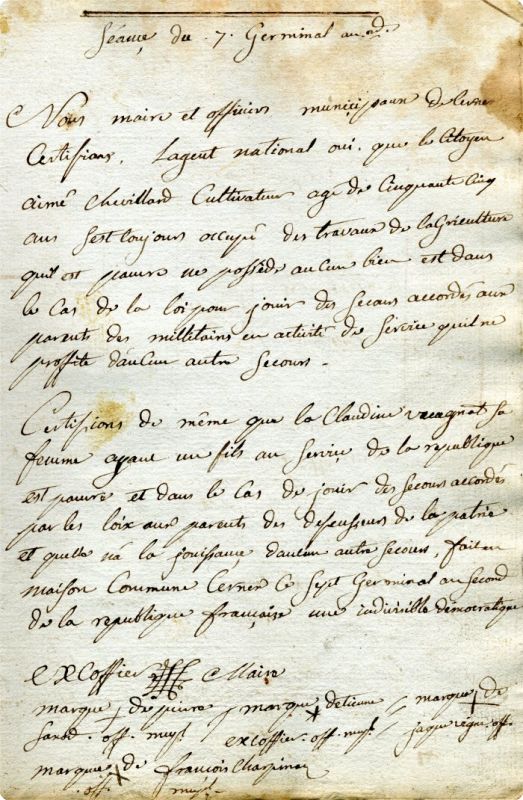 Séance du 7. Germinal an 2d.
Nous maire et officiers municipaux de Cernex
Certifions, Lagent national oui, que le Citoyen
aimé Chevillard Cultivateur agé de Cinquante Cinq
ans s'est toujours occupé des travaux de lagriculture
quil est pauvre ne posséde aucun bien est dans
le Cas de la loi pour jouir des Secours accordés aux
parents des millitaires en activité de Service quil ne
proffite daucun autre Secours.
Certifions de même que la Claudine sa
femme ayant un fils au Service de la republique
est pauvre et dans le Cas de jouir des Secours accordés
par les loix aux parents des deffenseurs de la patrie
et quelle n'a la jouissance daucun autre Secours, fait en
maison Commune Cernex Ce Sept Germinal an Second
de la republique française une indivisible démocratique
Excoffier Maire
marque de pierre marque detienne marque de
off. mupl. excoffier off. mupl. jaque off.
marque de françois Charpine
off. mupl.